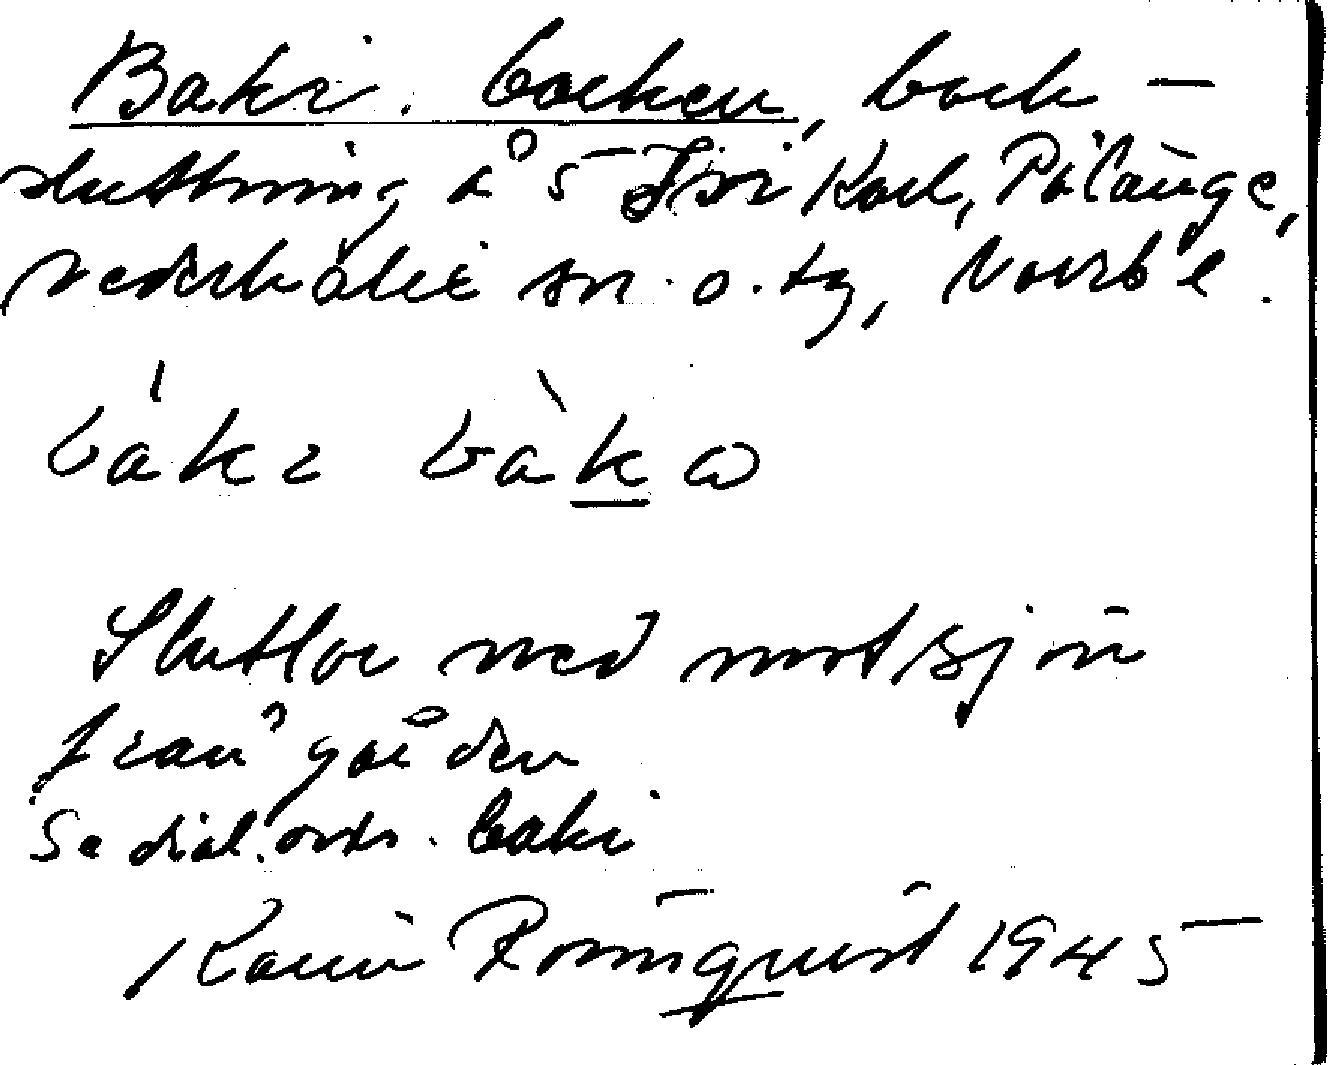 Baki. backen, back-
sluttning å 5 Karl, Pålänge,
Nederkalix sn. o. tg, Norrb. l.
bákı bàka
Sluttar ned mot sjön
från gården
Se dial. ords. baki
Karin Rönnquist 1945